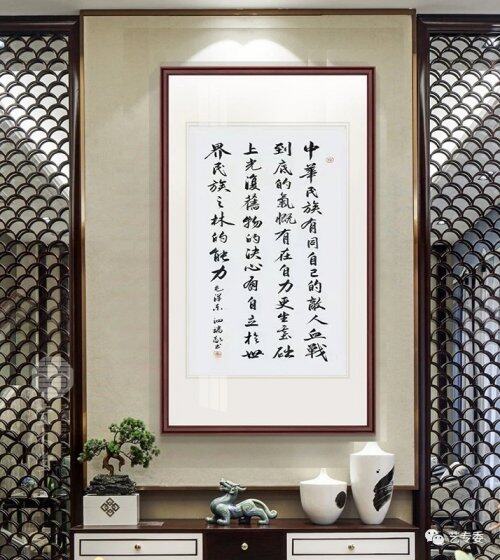 中華民族有同自己的敵人血戰
到底的氣慨有在自力更生基础
上光復舊物的决心有自立於世
界民族之林的能力
毛泽东
艺专委